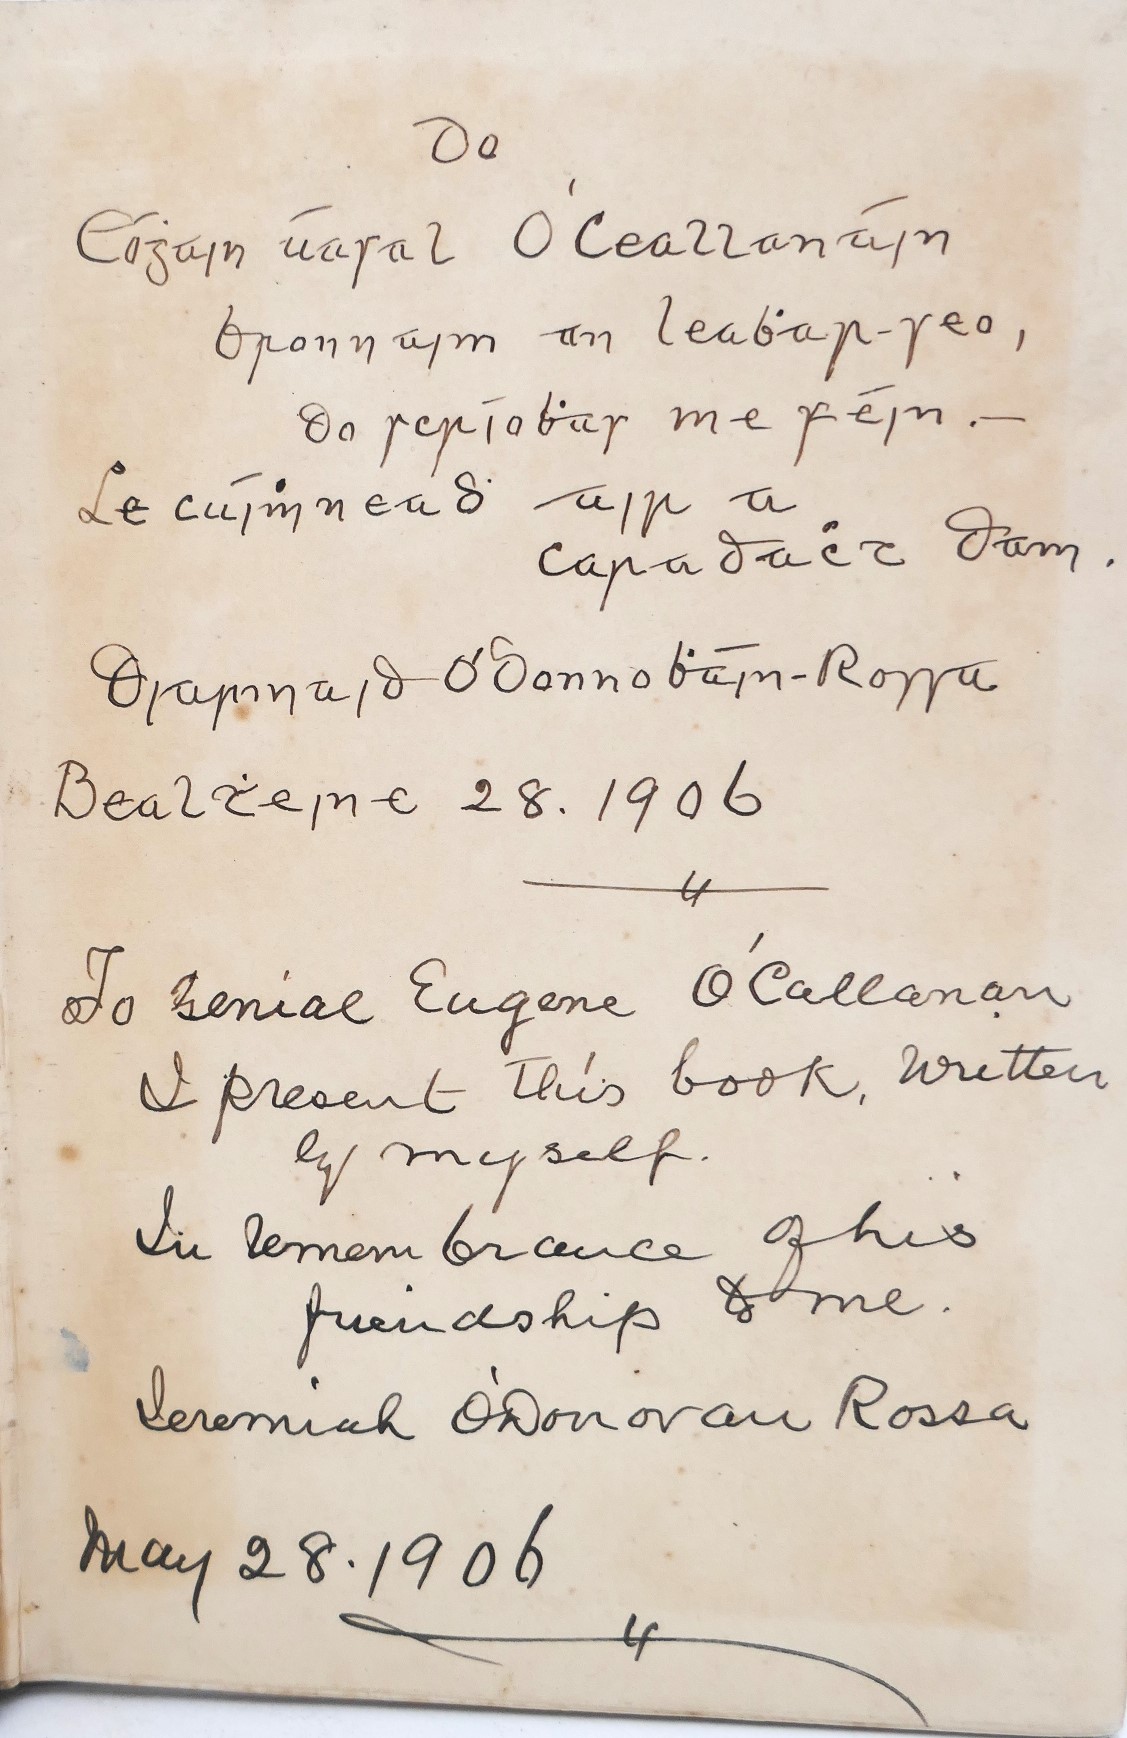 Do
Eóġain úasal O'Ceallanáin
bronnaim an leaḃar-seo,
do scríoḃas me féin.—
Le cúiṁneaḋ air a
caradaċt dam.
Diarmaid O'Donnoḃáin-Rossa
Bealṫeine 28. 1906
To genial Eugene O'Callanan
I present this book, written
by myself.
In remembrance of his
friendship to me.
Jeremiah O'Donovan Rossa
May 28. 1906